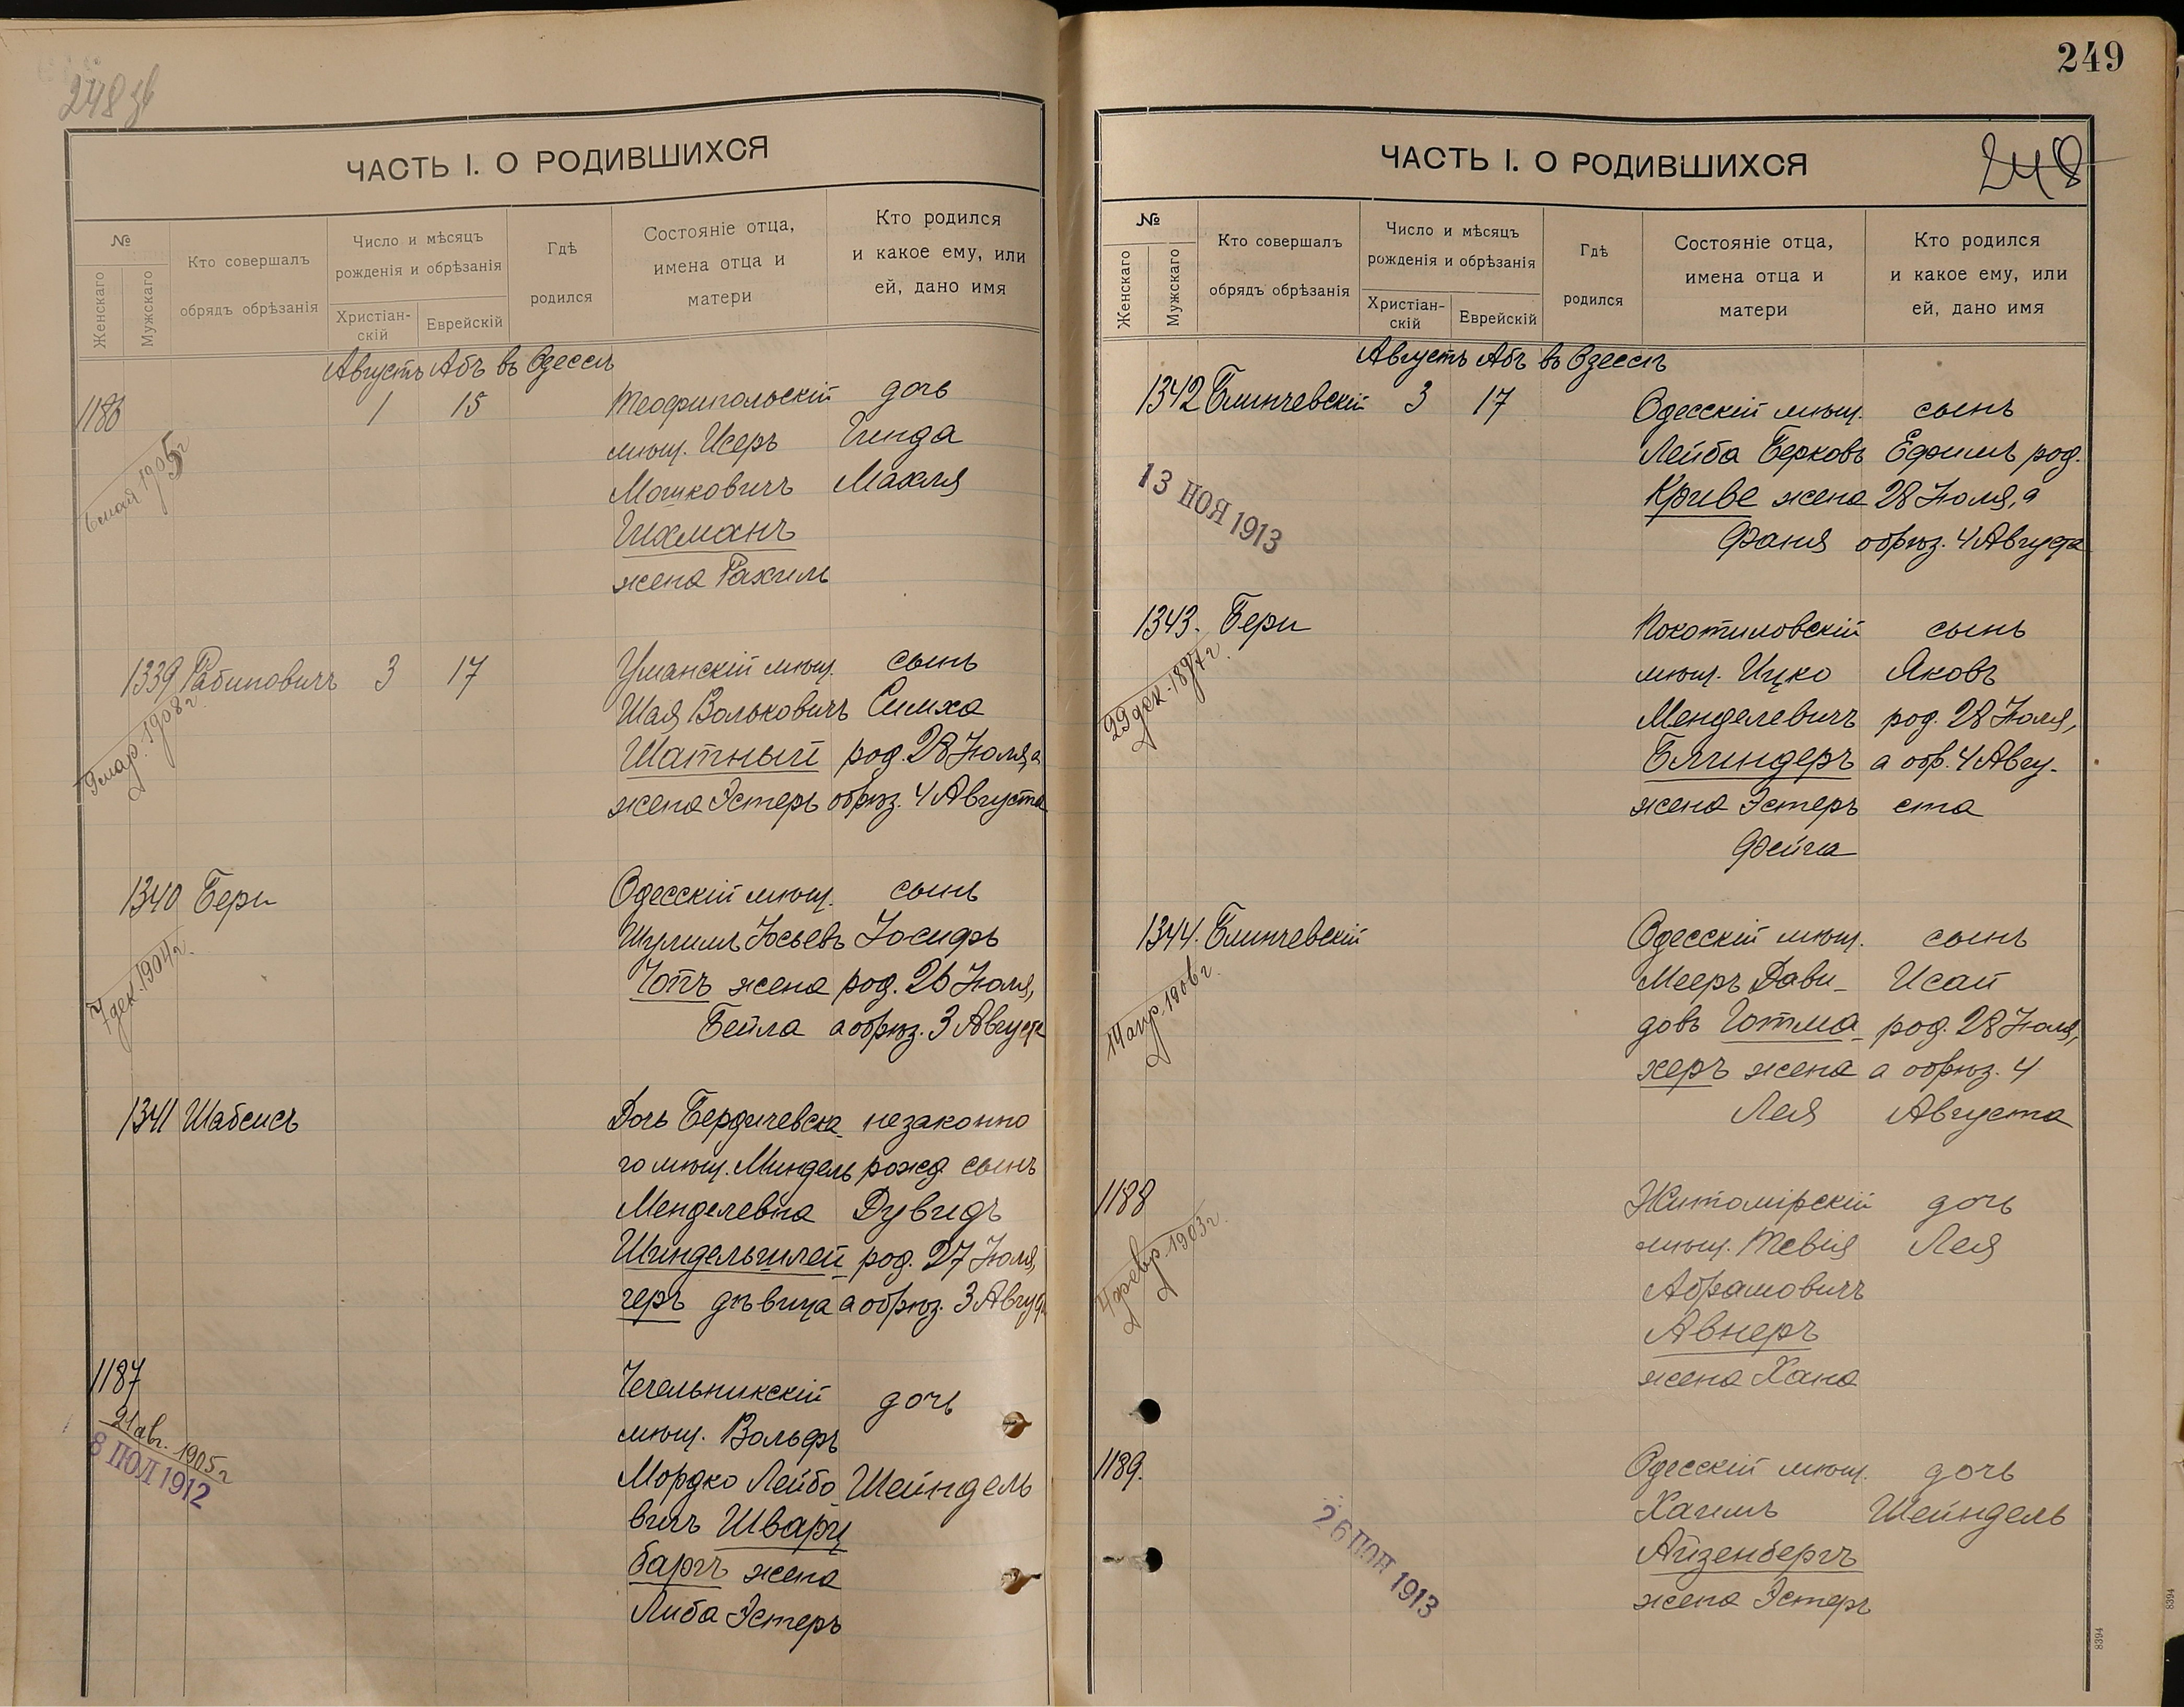 248 зв
ЧАСТЬ I. О РОДИВШИХСЯ
№
Женскаго
Мужскаго
Кто совершалъ
обрядъ обрѣзанія
Число и мѣсяцъ
рожденія и обрѣзанія
Христіан-
скій
Еврейскій
Гдѣ
родился
Состояніе отца,
имена отца и
матери
Кто родился
и какое ему, или
ей, дано имя
Августъ Абъ въ Одессѣ
1186 1 15 Теофипольскій дочь
мѣщ. Исеръ Гинда
Мошковичъ Махля
Шхманъ
жена Рахиль
6 мая 1905 г
1339 Рабиновичъ 3 17 Уманскій мѣщ. сынъ
Шая Вольковичъ Симха
Шатный род. 28 Іюля, а
жена Эстеръ обрѣз. 4 Августа
9 мар. 1908 г.
1340 Бери Одесскій мѣщ. сынъ
Шулимъ Іосьевъ Іосифъ
Чопъ жена род. 26 Іюля,
Бейла а обрѣз. 3 Августа
7 дек. 1904 г.
1341 Шабсисъ Дочь Бердичевска- незаконно
го мѣщ. Миндель рожд. сынъ
Менделевна Дувидъ
Шиндельшлей- род. 27 Іюля,
геръ дѣвица а обрѣз. 3 Августа
1187 Чечельникскій дочь
мѣщ. Вольфъ
Мордко Лейбо- Шейндель
вичъ Шварц
баргъ жена
Либа Эстеръ
21 авг. 1905 г
8 ІЮЛ 1912
249
248
ЧАСТЬ I. О РОДИВШИХСЯ
№
Женскаго
Мужскаго
Кто совершалъ
обрядъ обрѣзанія
Число и мѣсяцъ
рожденія и обрѣзанія
Христіан-
скій
Еврейскій
Гдѣ
родился
Состояніе отца,
имена отца и
матери
Кто родился
и какое ему, или
ей, дано имя
Августъ Абъ въ Одессѣ
1342 Блинчевскій 3 17 Одесскій мѣщ. сынъ
Лейба Берковъ Ефимъ род.
Криве жена 28 Іюля, а
Фаня обрѣз. 4 Августа
13 НОЯ 1913
1343. Бери Покотиловскій сынъ
мѣщ. Ицко Яковъ
Менделевичъ род. 28 Іюля,
Блиндеръ а обр. 4 Авгу-
жена Эстеръ ста
Фейга
29 дек. 1897 г.
1344. Блинчевскій Одесскій мѣщ. сынъ
Мееръ Дави- Исай
довъ Готма- род. 28 Іюля,
херъ жена а обрѣз. 4
Лея Августа
14 апр. 1906 г.
1188 Житомірскій дочь
мѣщ. Тевія Лея
Абрамовичъ
Авнеръ
жена Хана
4 февр. 1903 г.
1189. Одесскій мѣщ. дочь
Хаимъ Шейндель
Айзенбергъ
жена Эстеръ
26 ІЮН 1913
8394
8394